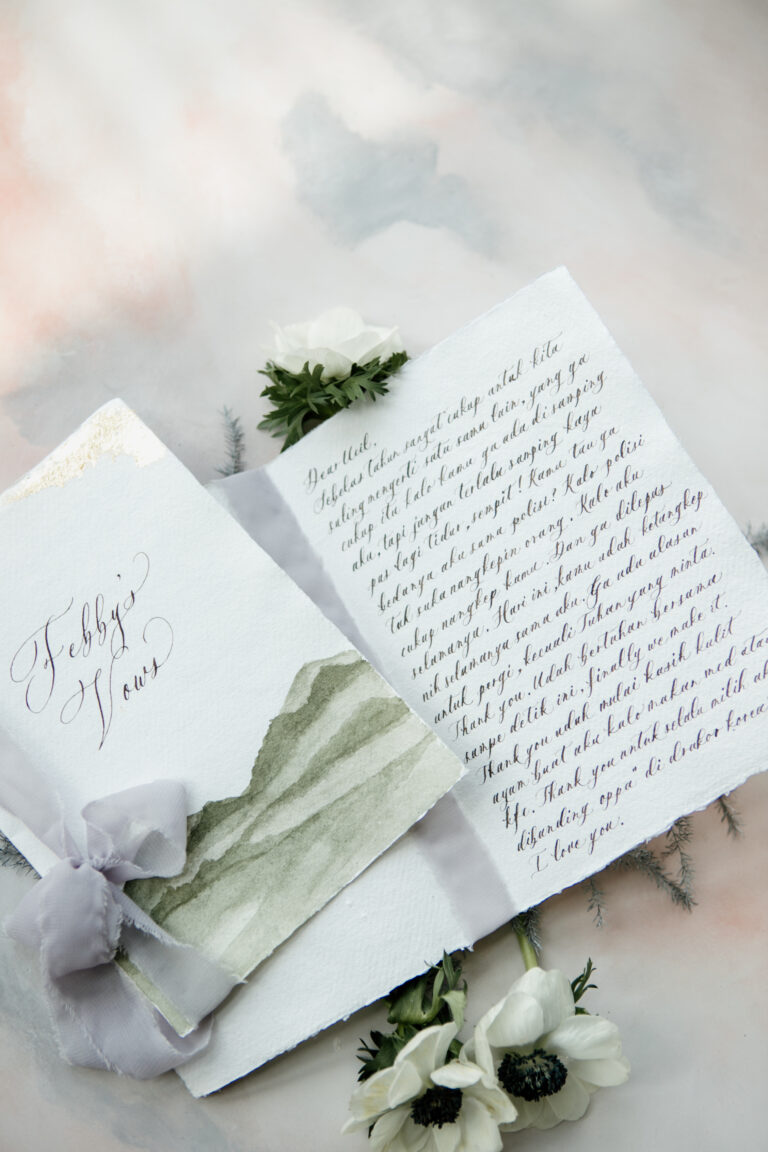 Febby's
Vows
Dear Ucil,
Sebelas tahun sangat cukup untuk kita
saling mengerti satu sama lain, yang ga
cukup itu kalo kamu ga ada di samping
aku, tapi jangan terlalu samping kaya
pas lagi tidur, sempit! Kamu tau ga
bedanya aku sama polisi? Kalo polisi
tuh suka nangkepin orang. Kalo aku
cukup nangkep kamu. Dan ga dilepas
selamanya. Hari ini, kamu udah ketangkep
nih selamanya sama aku. Ga ada alasan
untuk pergi, kecuali Tuhan yang minta.
Thank you. Udah bertahan bersama
sampe detik ini, finally we make it.
Thank you udah mulai kasih kulit
ayam buat aku kalo makan mcd
kfc. Thank you untuk selalu milih
dibanding oppa" di drakor korea
I love you.